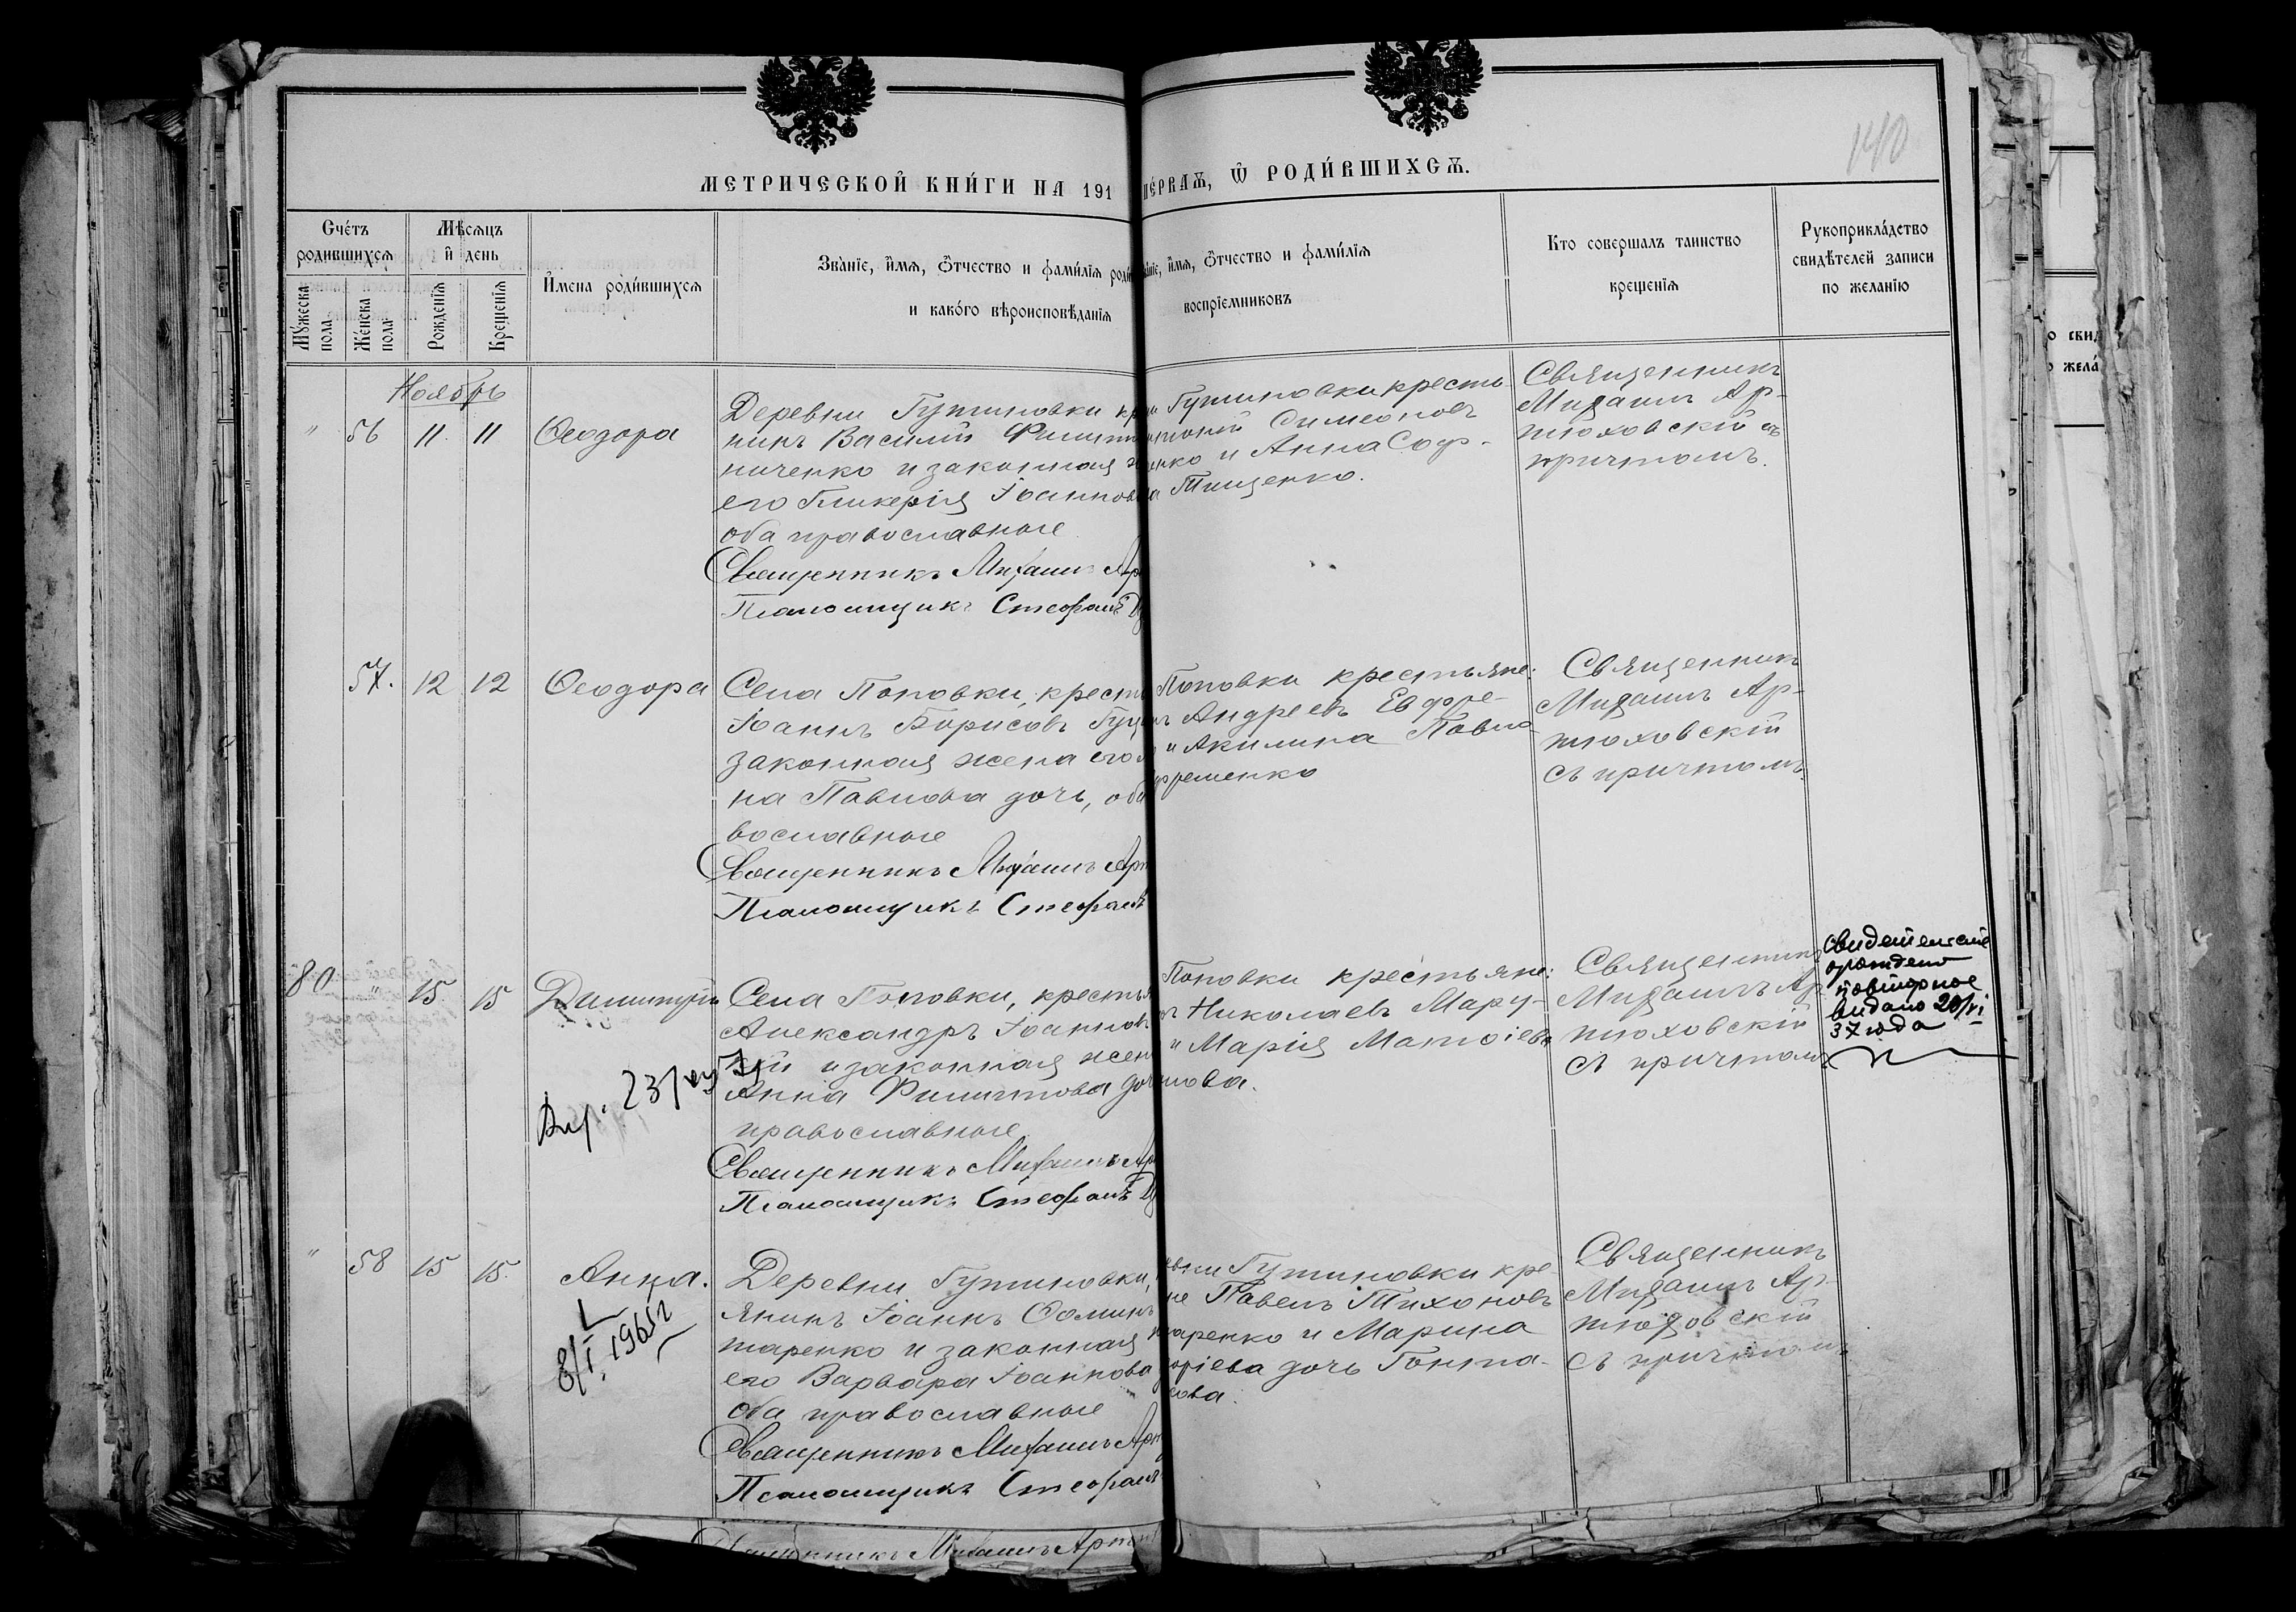 140
МЕТРИЧЕСКОЙ КНИ́ГИ НА 191
ПЕ́РВАѦ, Ѿ РОДИ́ВШИХСѦ.
Сче́тъ родившихсѧ
Мꙋ́жеска пола
Же́нска пола
Мѣ́сѧцъ и҆ день
Рожденїѧ
Крещенїѧ
И҆мена роди́вшихсѧ
Зва́нїе, и҆мѧ, ѻ҆тчество и фами́лїѧ роди
и како́го вѣроисповѣ́данїѧ
нїе, и҆мѧ, ѻ҆тчество и фами́лїѧ
воспрїемниковъ
Кто соверша́лъ таинство
крещенїѧ
Рукоприкла́дство
свидѣ́телей записи
по жела́нїю
Ноябрь
" 56 11 11 Ѳеодора
Деревни Гутиновки
никъ Василій
ниченко и законная
его Гликерія Іоаннова
оба православные
Священникъ Михаилъ Ар
Псаломщикъ Стефанъ
Гутиновки кресть-
Симеоновъ
нко и Анна Соф-
Тищенко.
Священникъ
Михаилъ Ар-
тюховскій съ
причтомъ.
57. 12 12 Ѳеодора
Села Поповки, крест
Іоаннъ Борисовъ Гуц
законная жена его
на Павлова дочь, оба
вославные
Священникъ Михаилъ Арт
Псаломщикъ Стефанъ
Поповки крестьяне:
Андреевъ Ефре-
и Акилина Павло
фременко
Священникъ
Михаилъ Ар-
тюховскій
съ причтомъ.
80 " 15 15 Димитрій
Села Поповки, крестья
Александръ Іоанновъ
кій и законная жен
Анна Филиппова доч
православные
Священникъ Михаилъ Ар
Псаломщикъ Стефанъ
Поповки крестьяне:
ъ Николаевъ Мару-
и Марія Матѳіева
нова.
Священникъ
Михаилъ Ар
тюховскій
съ причтомъ
повторное
видано 20/VI
37 года
" 58 15 15. Анна.
8/I 1965г
Деревни Гутиновки,
янинъ Іоаннъ Ѳоминъ
таренко и законная
его Варвара Іоаннова
оба православные
Священникъ Михаилъ Арт
Псаломщикъ Стефанъ
вни Гутиновки кре-
не Павелъ Тихоновъ
таренко и Марина
оріева дочь Гонта-
сова.
Священникъ
Михаилъ Ар-
тюховскій
съ причтомъ
Священникъ Михаилъ Артю